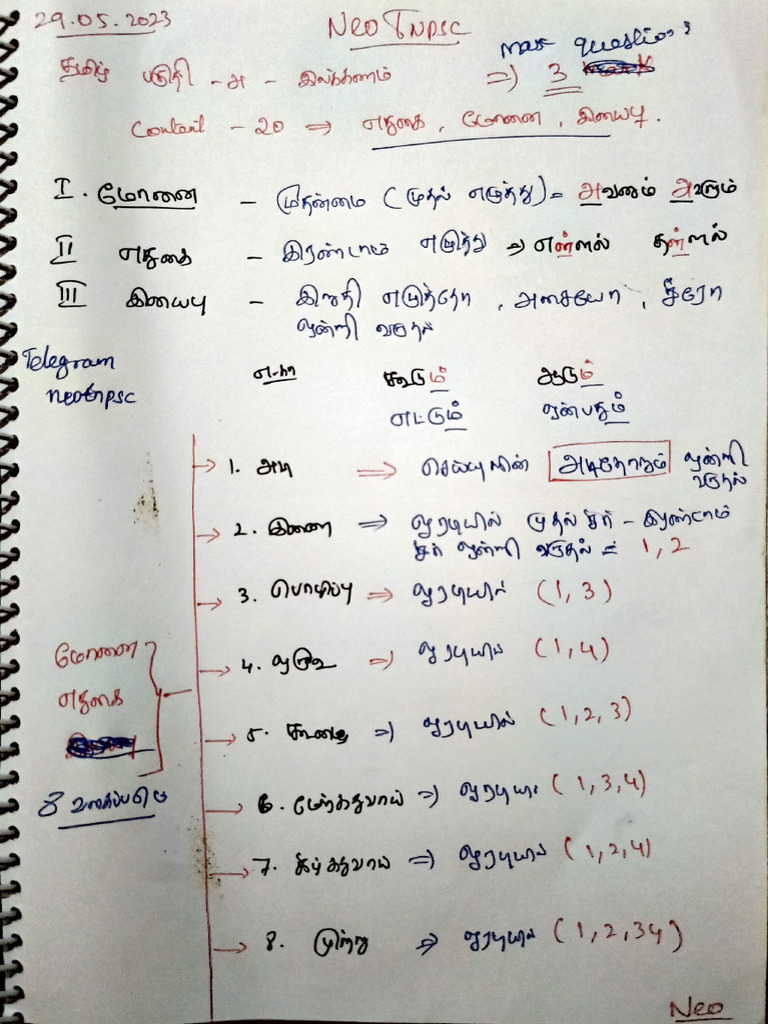 29.05.2023 Neo TNPSC
max question 3
தமிழ் பகுதி - அ - இலக்கணம் => 3
Content - 20 => எதுகை, மோனை, இயைபு.
I. மோனை - முதன்மை (முதல் எழுத்து) = அவனும் அவளும்
II எதுகை - இரண்டாம் எழுத்து => எள்ளல் தள்ளல்
III இயைபு - இறுதி எழுத்தோ, அசையோ, சீரோ
ஒன்றி வருதல்
Telegram
neotnpsc
எ-கா கூடும் ஆடும்
எட்டும் ஒன்பதும்
1. அடி => செய்யுளின் அடிதோறும் ஒன்றி
வருதல்
2. இணை => ஓரடியில் முதல் சீர் - இரண்டாம்
சீர் ஒன்றி வருதல் = 1, 2
3. பொழிப்பு => ஓரடியில் (1, 3)
4. ஒரூஉ => ஓரடியில் (1, 4)
5. கூழை => ஓரடியில் (1, 2, 3)
6. மேற்கதுவாய் => ஓரடியில் (1, 3, 4)
7. கீழ்கதுவாய் => ஓரடியில் (1, 2, 4)
8. முற்று => ஓரடியில் (1, 2, 34)
மோனை
எதுகை
8 வகைப்படும்
Neo